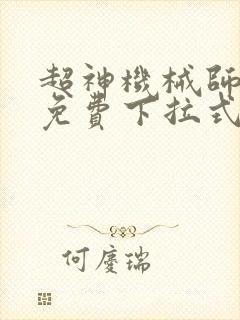 超神機械師
免費下拉式
何慶瑞